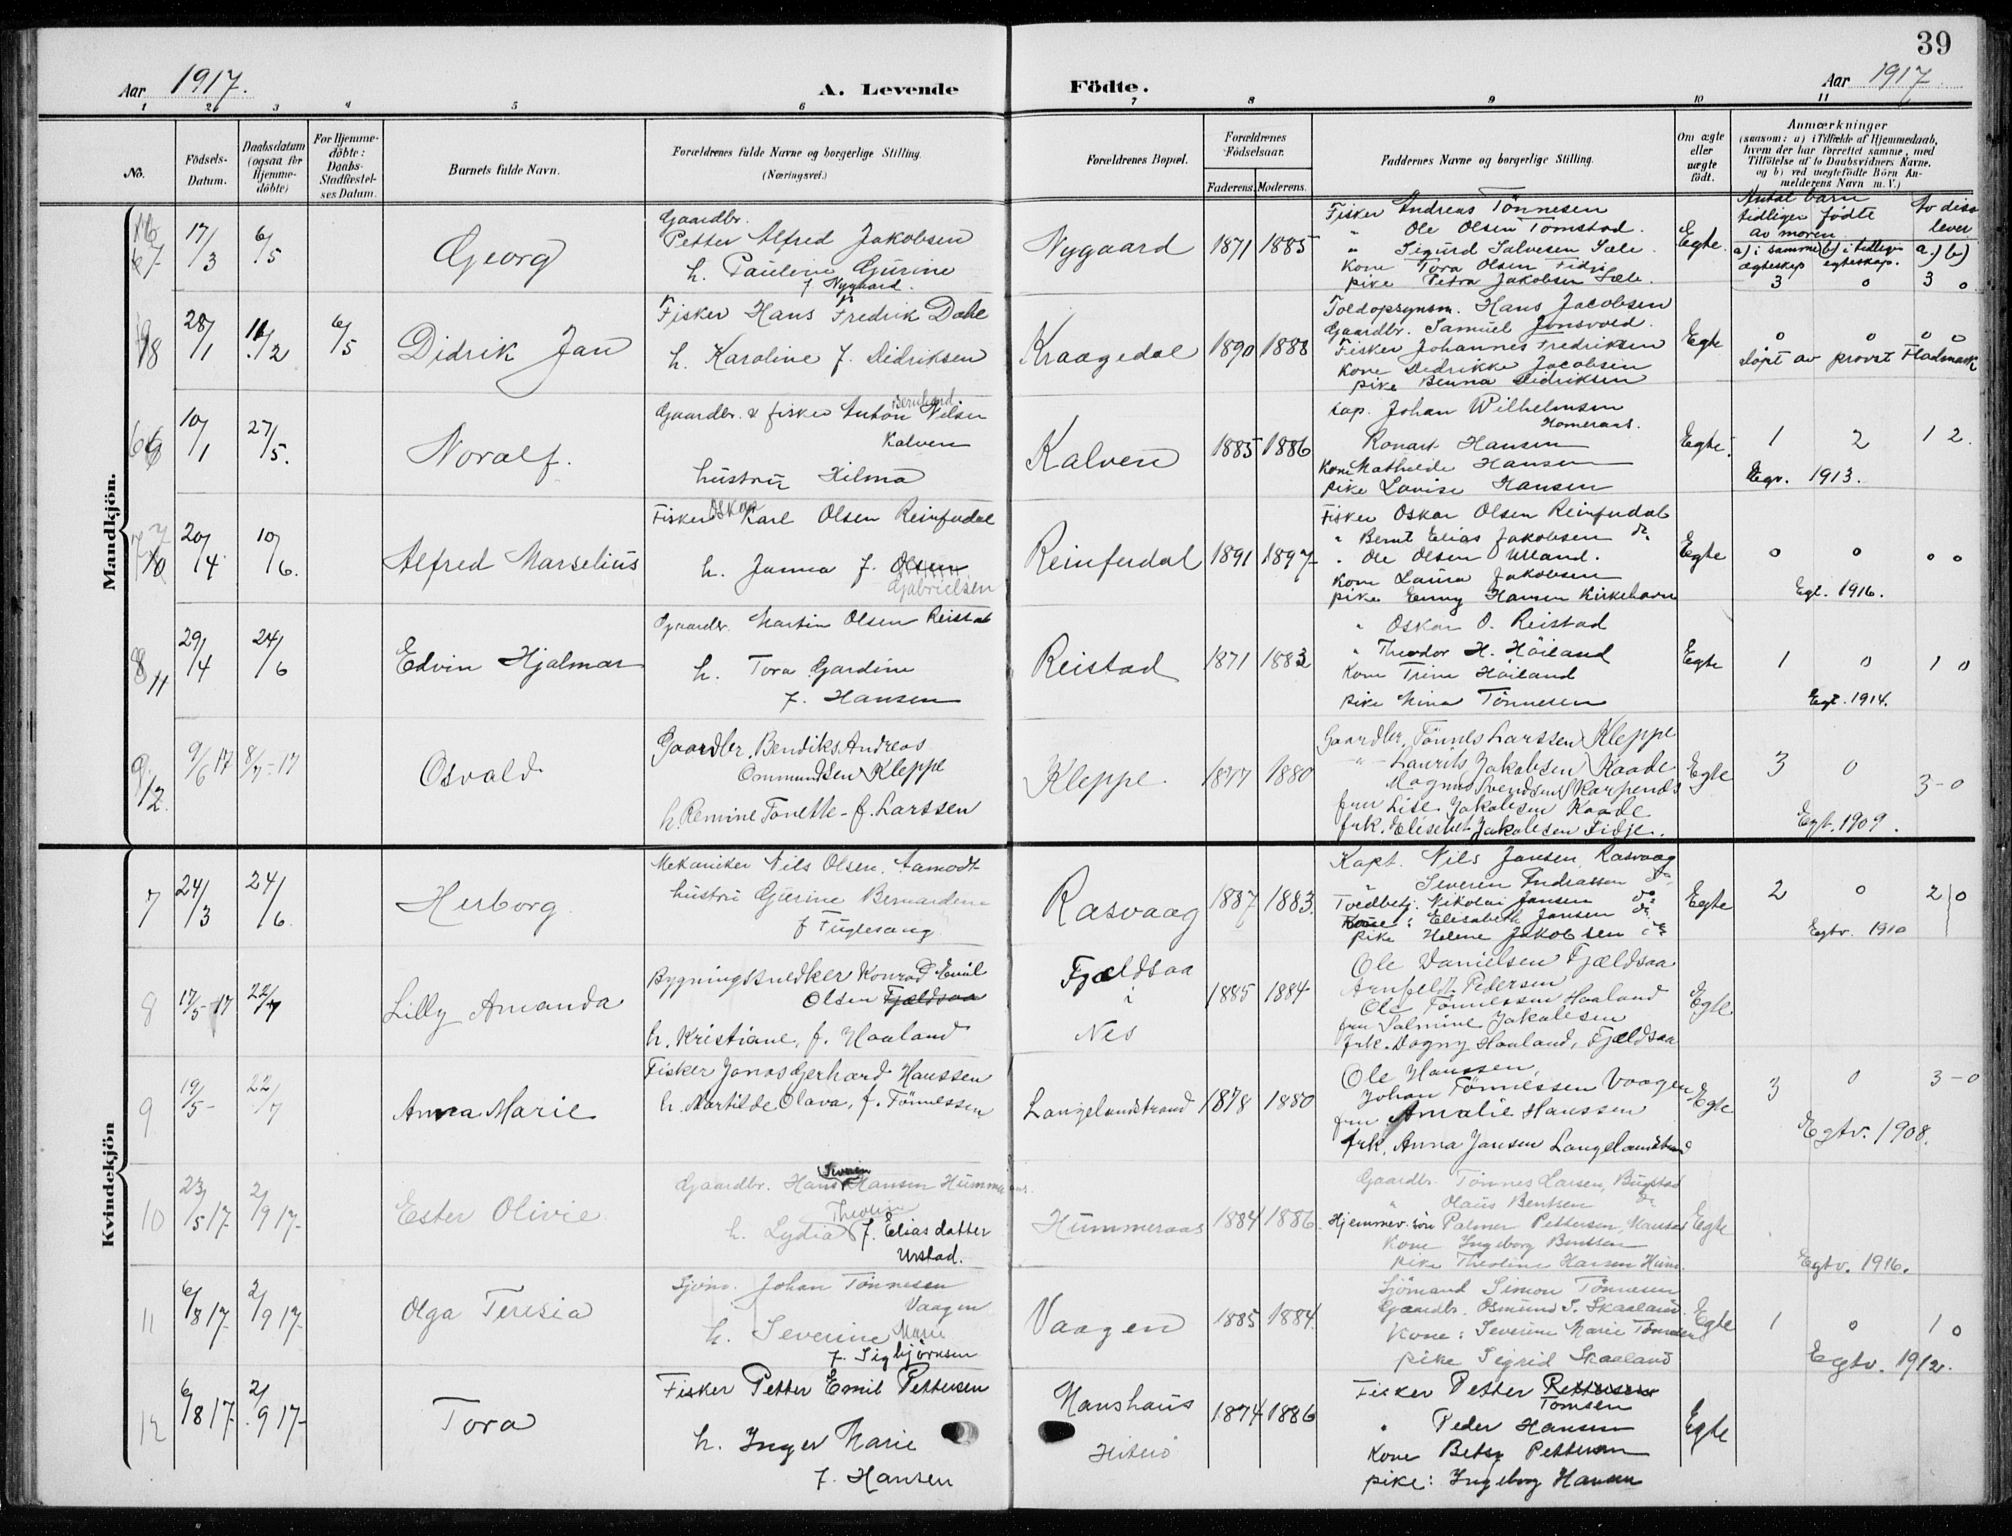 39
Aar 1917.
A. Levende
Födte.
Aar 1917
1 2 3 4 5 6 7 8 9 10 11
No.
Födsels-Datum.
Daabsdatum (ogsaa for Hjemme-döbte)
For Hjemme-döbte: Daabs-Stadfæstel-ses Datum.
Barnets fulde Navn.
Forældrenes fulde Navne og borgerlige Stilling.
(Næringsvei.)
Forældrenes Bopæl.
Forældrenes Födselsaar.
Faderens. Moderens.
Faddernes Navne og borgerlige Stilling.
Om ægte eller uægte födt.
Anmærkninger
(saasom: a) i Tilfælde af Hjemmedaab, hvem der har forrettet samme, med Tilföielse af to Daabsvidners Navne. og b) ved uægtefödte Börn An-melderens Navn m. V.)
Mandkjön.
17/3 6/5
Georg
Gaardbr.
Petter Alfred Jakobsen
h. Pauline Gurine
f Nygaard.
Nygaard
1871 1885
Fisker Andreas Tönnesen
" Ole Olsen Tomstad.
" Sigurd Salvesen Sæle
Kone Tora Olsen Fidje
pike Petra Jakobsen Sæle.
Egte.
Antal barn tidligere födte av moren
Av disse lever
a) i samme ægteskap b) i tidligere egteskap. a) b)
3 0 3 0
28/1 11/2 6/5
Didrik Jan
Fisker Hans Fredrik Dahl
h. Karoline f. Didriksen
Kraagedal
1890 1888
Toldopsynsm. Hans Jacobsen
Gaardbr. Samuel Jonsvold.
Fisker Johannes Fredriksen
Kone Didrikke Jacobsen
pike Benna Didriksen
Egte
0 0 0 0
döpt av provst Fladmark
10/1 27/5.
Noralf.
Gaardbr. & fisker Anton Bernhard Nilsen
Kalven
hustru Hilma
Kalven
1885 1886
Kap. Johan Wilhelmsen
Homeraas.
Ronart Hansen
Kone Mathilde Hansen
pike Lovise Hansen
Egte.
1 2 1 2.
Egv. 1913.
20/4 10/6.
Alfred Marselius
Fisker Oskar Karl Olsen Reinferdal
h. Janna f. Olsen
Gabrielsen
Reinferdal
1891 1897
Fisker Oskar Olsen Reinferdal
" Bernt Elias Jakobsen do.
" Ole Olsen Ulland.
Kone Laura Jakobsen
pike Enny Hansen Kirkehavn
Egte
0 0 0 0
Egt. 1916.
8 11
29/4 24/6
Edvin Hjalmar
Gaardbr. Martin Olsen Reistad
h. Tora Gardine
f. Hansen
Reistad
1871 1883
" Oskar O. Reistad
" Theodor H. Höiland
Kone Trine Höiland
pike Mina Tönnesen
Egte
1 0 1 0
Egt. 1914.
9 12.
9/6 17 8/7-17
Osvald
Gaardbr. Bendiks Andreas
Ommundsen Kleppe
h. Remine Tonette f. Larssen
Kleppe.
1877 1880
Gaardbr. Tönnes Larssen Kleppe
" Laurits Jakobsen Kaade
Magnus Svendsen Skarpenes
fru Lise Jakobsen Kaade
frk. Elisebet Jakobsen Fidje.
Egte
3 0 3-0
Egt. 1909.
Kvindekjön
7
24/3 24/6.
Herborg
Mekaniker Nils Olsen. Aamodt
hustru Gurine Bernardine
f Fuglesang
Rasvaag
1887 1883.
Kapt. Nils Jansen, Rasvaag
" Severin Andreassen do.
Toldbetj. Nikolai Jansen do
Kone: Elisabeth Jansen do.
pike Helene Jakobsen do
Egte
2 0 2 0
Egtv. 1910
8
17/5-17 22/7
Lilly Amanda
Bygningssnedker Konrad Emil
Olsen Fjeldsaa
h. Kristiane, f. Haaland
Fjældsaa
i
Nes
1885 1884
Ole Danielsen Fjældsaa
Arnfeldt Pedersen
Ole Tönnessen Haaland
fru Salmine Jakobsen
frk. Dagny Haaland, Fjældsaa
Egte
9
19/5- 22/7
Anna Marie
Fisker Jonas Gerhard Hanssen
h. Martilde Olava, f. Tönnessen
Langelandstrand
1878 1880
Ole Hanssen,
Johan Tönnessen Vaagen
fru Amalie Hanssen
frk. Anna Jansen Langelandstrand
Egte
3 0 3-0
Egtv. 1908.
10
23/5 17. 2/9 17-
Ester Olivie
Gaardbr. Hans Severin Hansen Hummeraas.
h. Lydia Theoline f. Eliasdatter
Urstad.
Hummeraas
1884 1886
Gaardbr. Tönnes Larsen, Bugstad
" Olaus Bentsen do
Hjemmev. sön Palmer Pettersen,
Kone Ingeborg Bentsen
pike Theoline Hansen Hum.
Egte
Egtv. 1916.
11
6/8 17 2/9 17-
Olga Teresia
Sjöm. Johan Tönnesen
Vaagen
h. Severine Marie
f. Sigbjörnsen
Vaagen
1885 1884.
Sjömand Simon Tönnesen
Gaardbr. Osmund S. Skaaland
Kone: Severine Marie Tönnesen
pike Sigrid Skaaland
Egte
1 0 1 0
Egtv. 1912.
12
6/8 17 2/9 17-
Tora
Fisker Petter Emil Pettersen
h. Inger Marie
f. Hansen
Hanshaus
Hiterö
1874 1886
Fisker Petter Pettersen
Tomsen
" Peder Hansen
Kone Betsy Pettersen
pike: Ingeborg Hansen
Egte